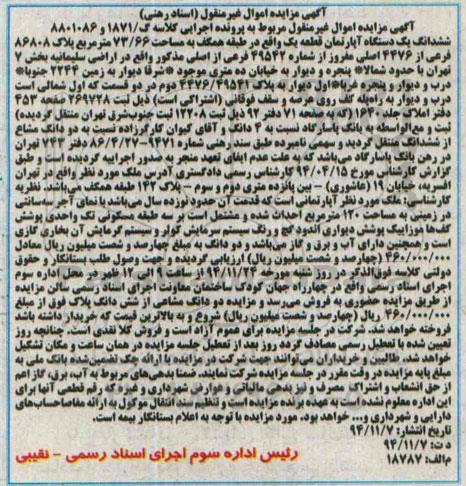 آگهی مزایده اموال غیرمنقول (اسناد رهنی)
آگهی مزایده اموال غیرمنقول مربوط به پرونده اجرایی کلاسه گ/۱۸۷۱ و ۸۸۰۱۰۸۶
ششدانگ یک دستگاه آپارتمان قطعه یک واقع در طبقه همکف به مساحت ۷۳/۶۶ مترمربع پلاک ۸۶۸۰۸
فرعی از ۴۴۷۶ اصلی مفروز از شماره ۴۹۵۴۲ فرعی از اصلی مذکور واقع در اراضی سلیمانیه بخش ۷
تهران با حدود شمالا* پنجره و دیوار به خیابان ده متری موجود *شرقا دیوار به زمین ۲۲۴۴ جنوبا*
درب و دیوار و پنجره غربا*اول دیوار به پلاک ۴۴۷۶/۴۹۵۴۱ دوم در دو قسمت که اول شمالی است
درب و دیوار به راه‌پله کف روی عرصه و سقف فوقانی (اشتراکی است) ذیل ثبت ۲۶۹۷۲۸ صفحه ۴۵۳
دفتر املاک جلد ۱۶۴۰ (که به صفحه ۷۱ دفتر ۹۲ ذیل ثبت ۱۲۲۰۸ ثبت جنوب‌شرق تهران منتقل گردیده)
ثبت و مع‌الواسطه به بانک پاسارگاد نسبت به ۴ دانگ و آقای کیوان کارگرزاده نسبت به دو دانگ مشاع
از ششدانگ منتقل گردید و سهمی نامبرده طبق سند رهنی شماره ۹۴۷۱-۸۶/۴/۲۷ دفتر ۷۴۴ تهران
در رهن بانک پاسارگاد می‌باشد که به علت عدم ایفای تعهد منجر به صدور اجراییه گردیده است و طبق
گزارش کارشناس مورخ ۹۴/۰۴/۱۵ کارشناس رسمی دادگستری آدرس ملک مورد نظر واقع در تهران
افسریه، خیابان ۱۹ (عاشوری) - بین پانزده متری دوم و سوم - پلاک ۱۴۲ طبقه همکف می‌باشد. نظریه
کارشناسی: ملک مورد نظر آپارتمانی است که قدمت آن حدود نوزده سال می‌باشد با نمای آجر سه‌سانتی
در زمینی به مساحت ۱۲۰ مترمربع احداث شده و مشتمل است بر سه طبقه مسکونی تک واحدی پوشش
کف‌ها موزاییک پوشش دیواری اندود گچ و رنگ سیستم سرمایش کولر و سیستم گرمایش آن بخاری گازی
است و همچنین دارای آب و برق و گاز می‌باشد و دو دانگ به مبلغ چهارصد و شصت میلیون ریال معادل
۴۶۰/۰۰۰/۰۰۰ (چهارصد و شصت میلیون ریال) ارزیابی گردیده و جهت وصول طلب بستانکار و حقوق
دولتی کلاسه فوق‌الذکر در روز شنبه مورخه ۹۴/۱۱/۲۴ از ساعت ۹ الی ۱۲ ظهر در محل اداره سوم
اجرای اسناد رسمی واقع در چهارراه جهان کودک ساختمان معاونت اجرای اسناد رسمی سالن مزایده
از طریق مزایده حضوری به فروش می‌رسد و مزایده دو دانگ مشاعی از شش دانگ پلاک فوق از مبلغ
۴۶۰/۰۰۰/۰۰۰ ریال (چهارصد و شصت میلیون ریال) شروع و به بالاترین قیمت که خریدار داشته باشد
فروخته خواهد شد. شرکت در جلسه مزایده برای عموم آزاد است و فروش کلا نقدی است. چنانچه روز
تعیین شده با تعطیل رسمی مصادف گردد روز بعد از تعطیل جلسه مزایده در همان ساعت و مکان تشکیل
خواهد شد. طالبین و خریداران می‌توانند جهت شرکت در مزایده با ارائه چک تضمین شده بانک ملی به
مبلغ پایه مزایده در وقت مقرر در جلسه مزایده شرکت نمایند. ضمنا بدهی‌های مربوط به آب، برق، گاز اعم
از حق انشعاب و اشتراک مصرف و نیز بدهی مالیاتی و عوارض شهرداری و غیره که رقم قطعی آنها برای
این اداره معلوم نشده است به عهده برنده مزایده است و تنظیم سند انتقال موکول به ارائه مفاصاحساب‌های
دارایی و شهرداری و... خواهد بود. مورد مزایده با توجه به اعلام بستانکار بیمه است.
تاریخ انتشار: ۹۴/۱۱/۷
د ت: ۹۴/۱۱/۷
م‌الف: ۱۸۷۸۷
رئیس اداره سوم اجرای اسناد رسمی - نقیبی